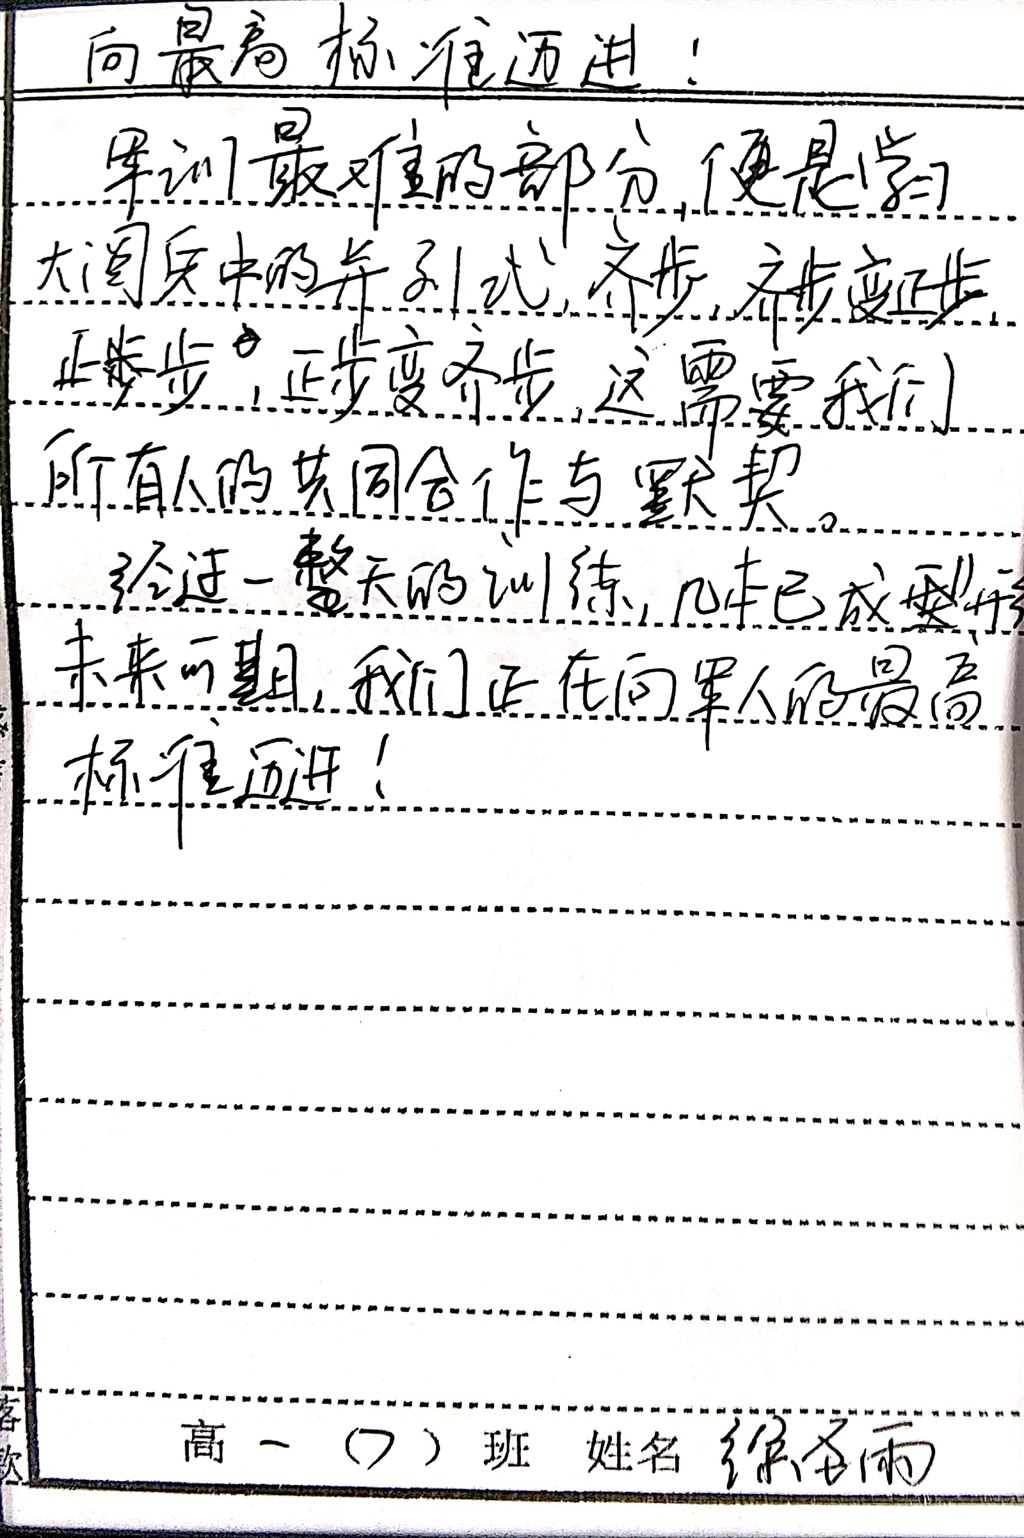 向最高标准迈进！
军训最难的部分,便是学习
大阅兵中的弁列式,齐步,齐步变正步,
正步步,正步变齐步,这需要我们
所有人的共同合作与默契。
经过一整天的训练,几本已成型形
未来可期,我们正在向军人的最高
标准迈进！
高一（7）班 姓名 徐 雨
落款